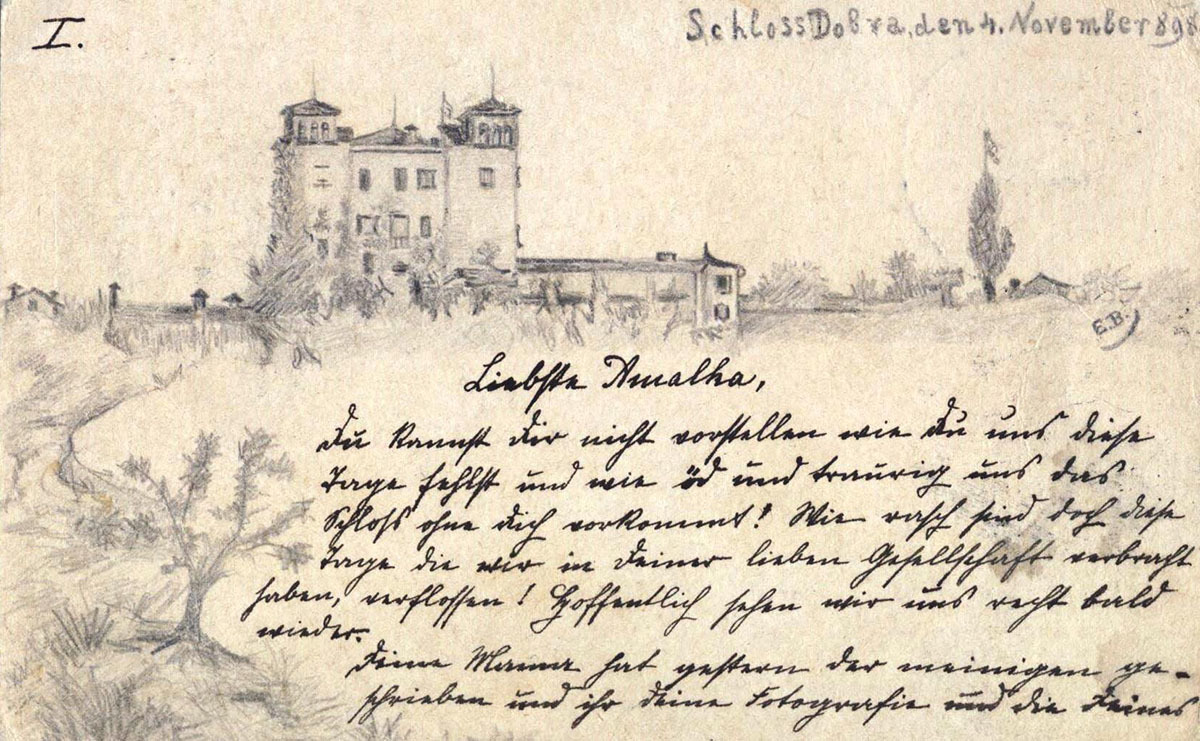 I.
Schloss Dobra, den 4. November 898
E.B.
Liebste Amalka,
Du kannst Dir nicht vorstellen wie Du uns diese
Tage fehlst und wie öd und traurig uns das
Schloss ohne Dich vorkommt! Wie rasch sind doch diese
Tage die wir in Deiner lieben Gesellschaft verbracht
haben, verflossen! Hoffentlich sehen wir uns recht bald
wieder.
Deine Mama hat gestern der meinigen ge-
schrieben und ihr Deine Fotografie und die Deines